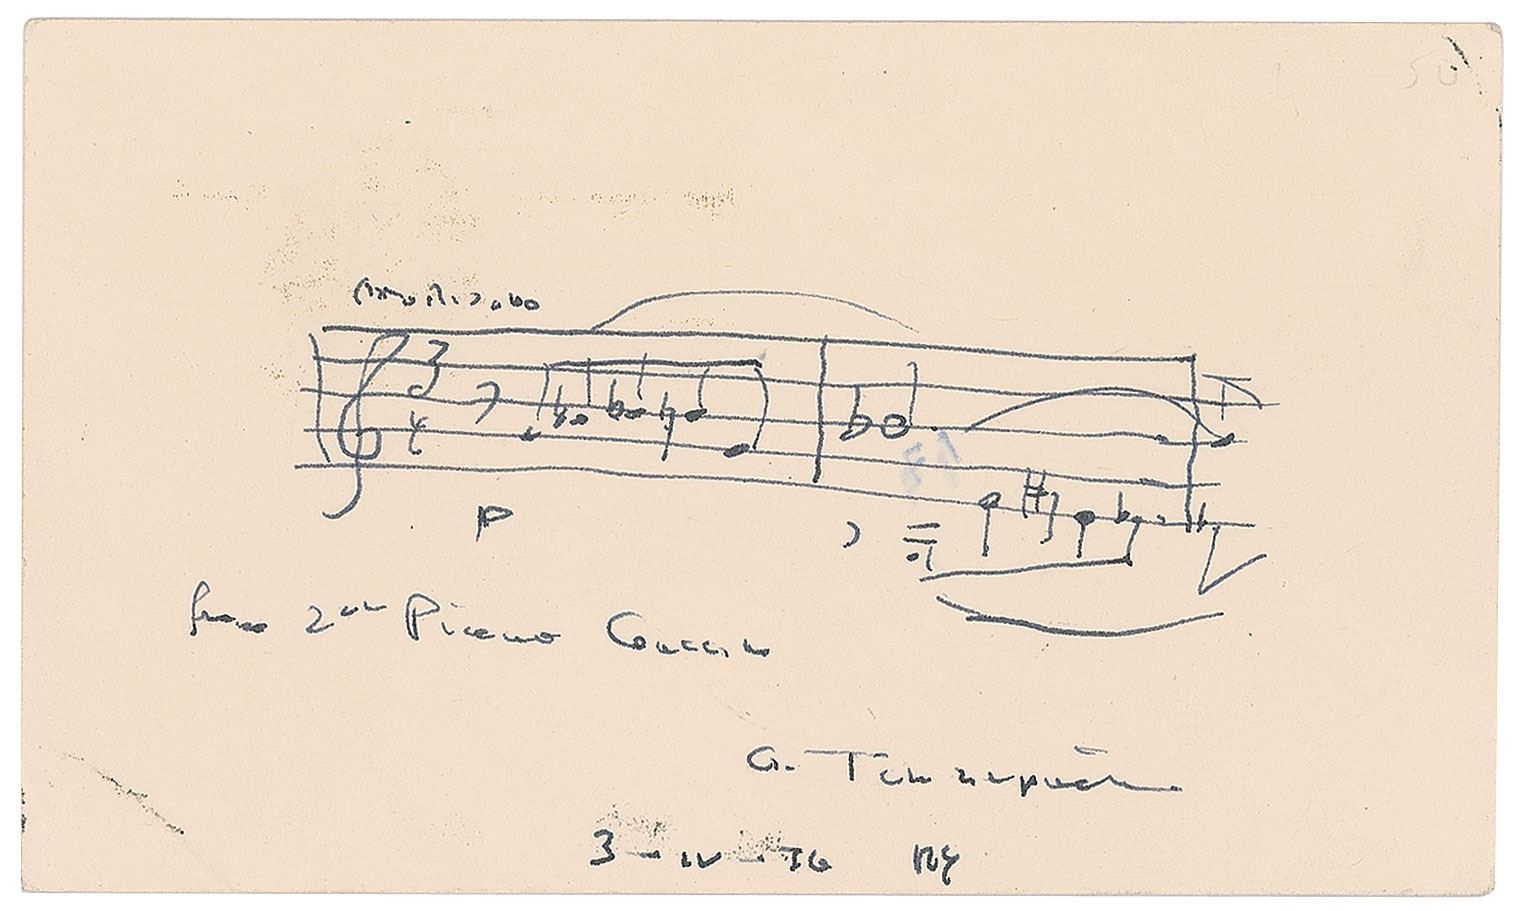 3
4
P
from 2nd Piano Concerto
A. Tcherepnin
3 - IV - 76 NY